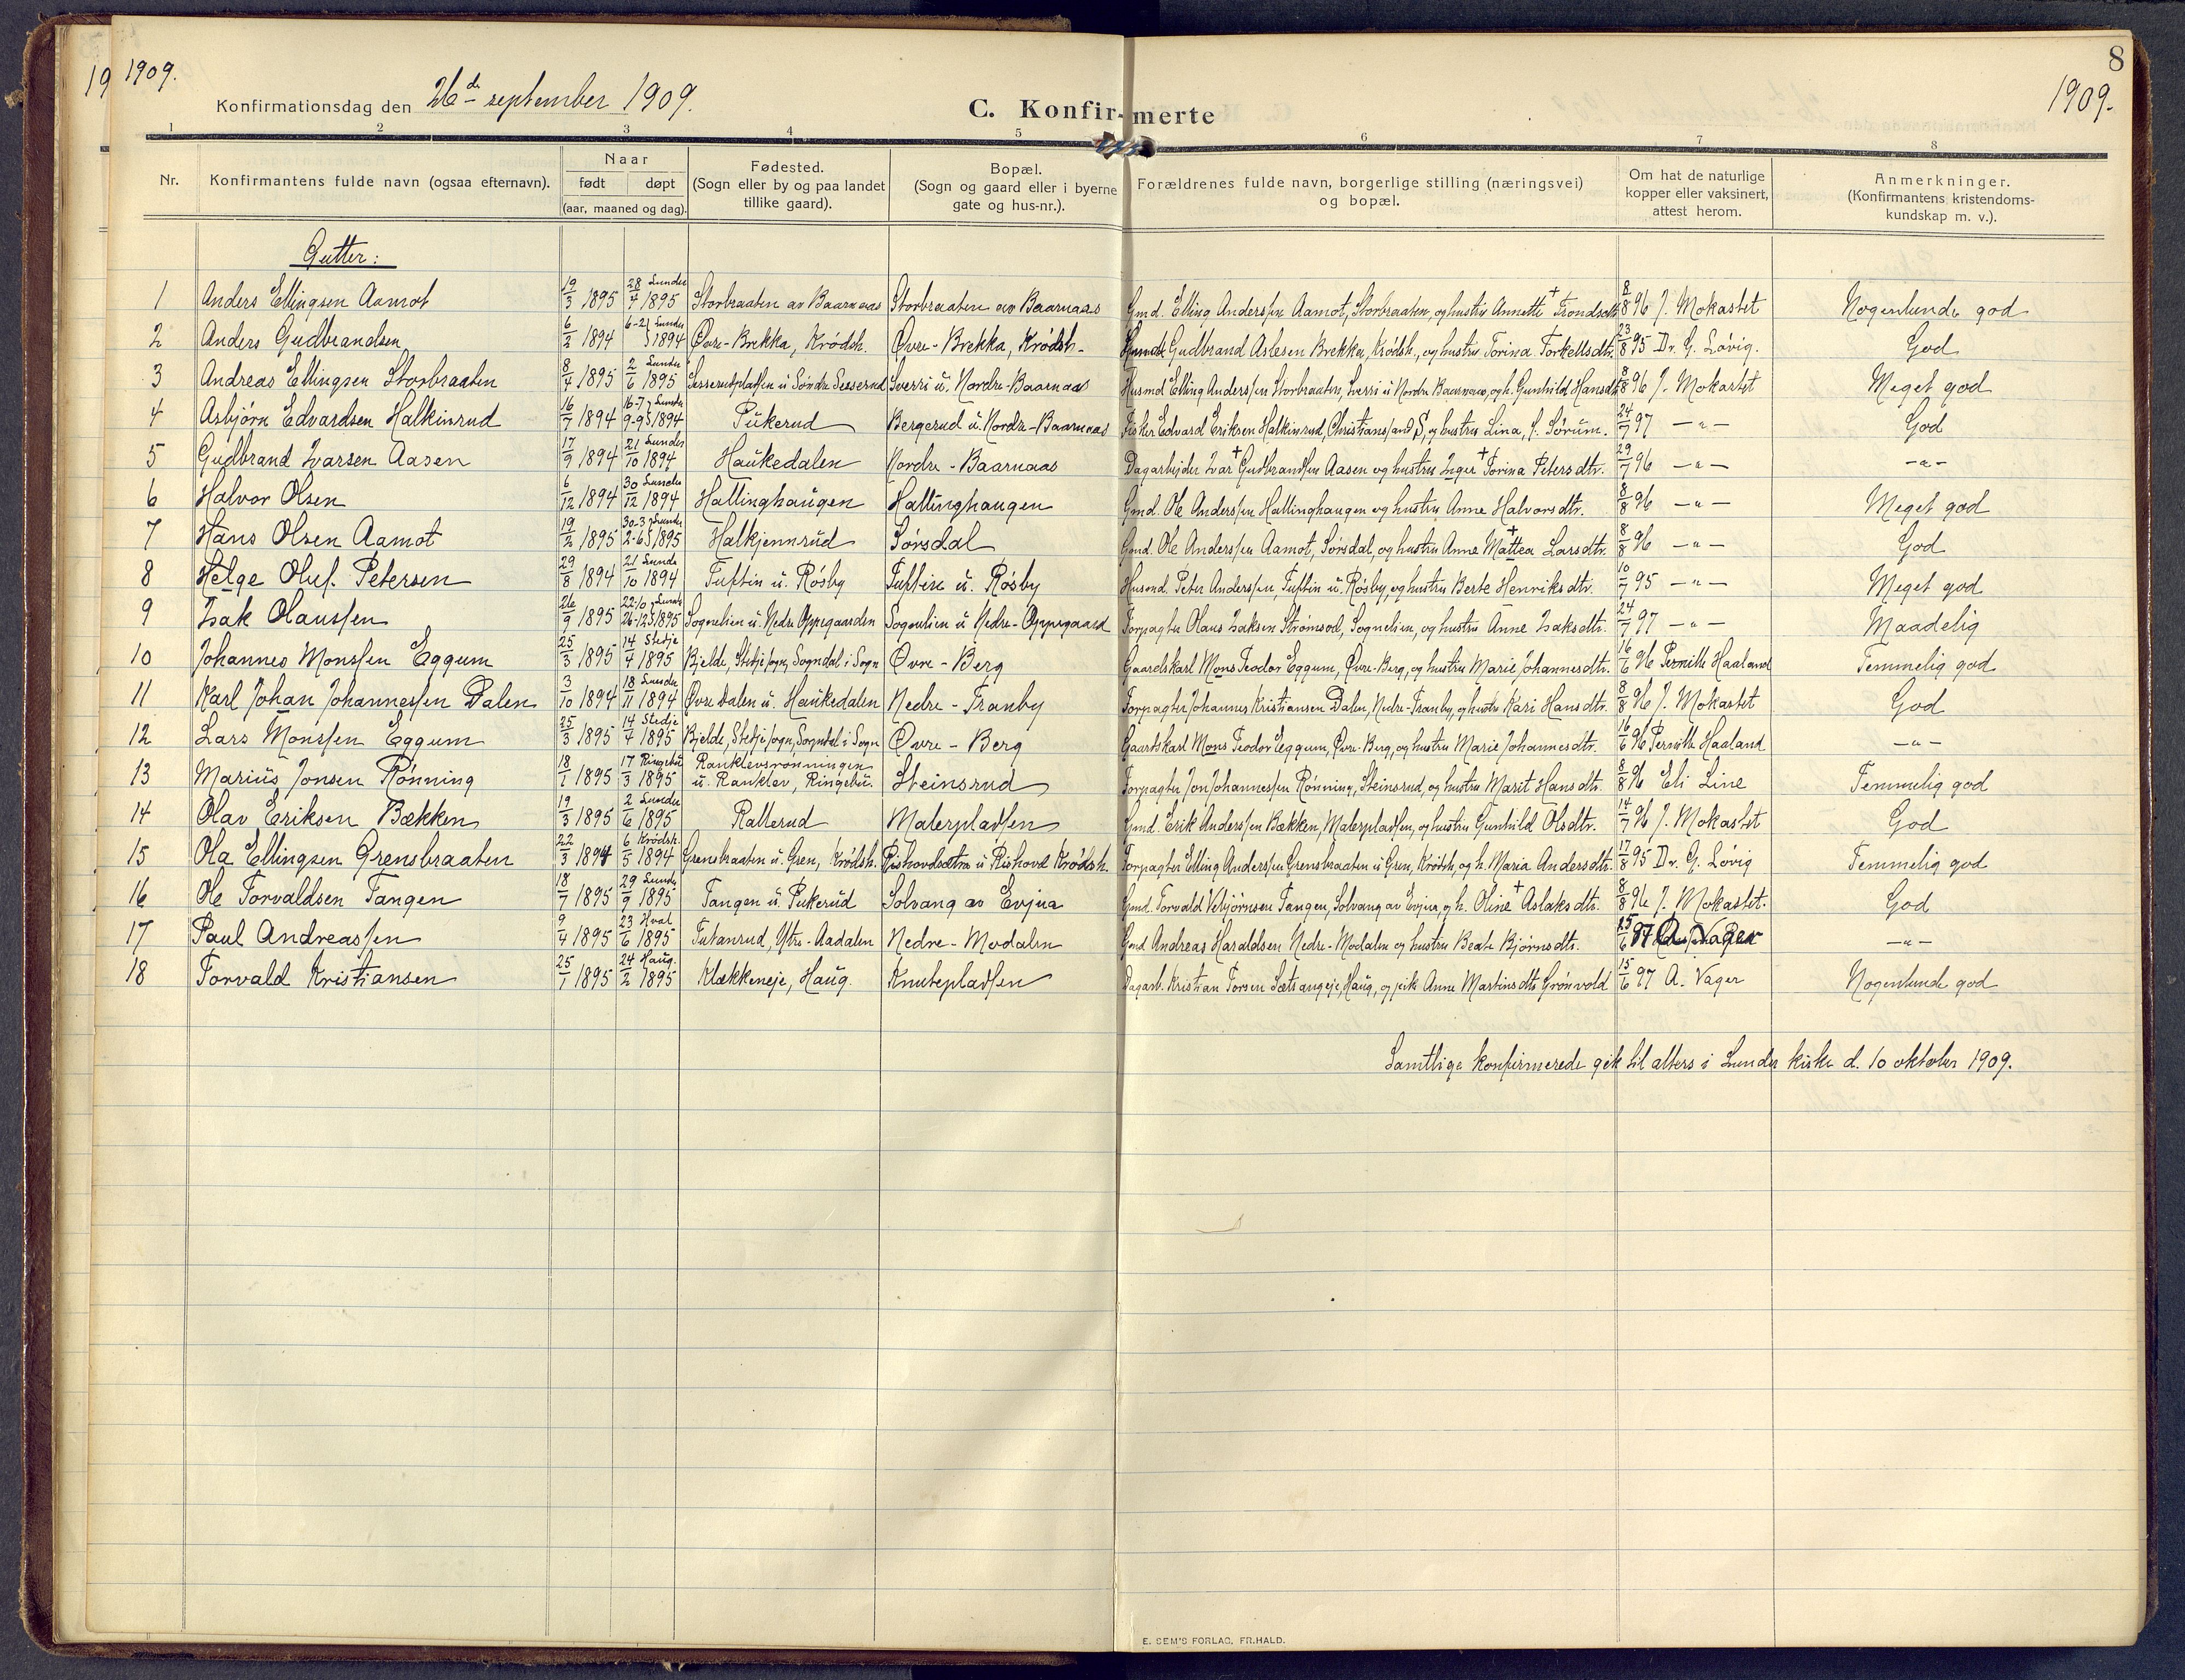 19 1909.
8
1909.
Konfirmationsdag den 26de september 1909.
C. Konfirmerte
1 2 3 4 5 6 7 8
Nr. Konfirmantens fulde navn (ogsaa efternavn). Naar født døpt (aar, maaned og dag). Fødested. (Sogn eller by og paa landet tillike gaard). Bopæl. (Sogn og gaard eller i byerne gate og hus-nr.). Forældrenes fulde navn, borgerlige stilling (næringsvei) og bopæl. Om hat de naturlige kopper eller vaksinert, attest herom. Anmerkninger. (Konfirmantens kristendomskundskap m. v.).
Gutter:
1 Anders Ellingsen Aamot 19/3 1895 28/4 Lunder 1895 Storbraaten av Baarnaas Storbraaten av Baarnaas Gmd. Elling Anderssen Aamot, Storbraaten, og hustru Annette + Trondsdtr. 8/8 96 J. Mokastet Nogenlunde god
2 Anders Gudbrandsen 6/2 1894 6-2 Lunder 1894 Øvre-Brekka, Krødsh. Øvre-Brekka, Krødsh. Gudbrand Aslesen Brekka, Krødsh., og hustru Torina Torkellsdtr. 23/8 95 Dr. G. Løvig. God
3 Andreas Ellingsen Storbraaten 8/4 1895 2/6 Lunder 1895 Sesserudpladsen u Søndre Sesserud Sverri u. Nordre-Baarnaas Husmd Elling Anderssen Storbraaten, Sverri u Nordre Baarnaas, og h. Gunhild Hansdtr. 8/8 96 J. Mokastet Meget god
4 Asbjørn Edvardsen Halkinrud 16/7 1894 16-7 Lunder 9-9 1894 Pukerud Bergerud u. Nordre-Baarnaas Fisker Edvard Eriksen Halkinrud, Christianssand S, og hustru Lina, f. Sørum. 24/7 97 -"- God
5 Gudbrand Ivarsen Aasen 17/9 1894 21/10 Lunder 1894 Haukedalen Nordre-Baarnaas Dagarbejder Ivar + Gudbrandsen Aasen og hustru Inger + Torina Petersdtr. 29/7 96 -"- -"-
6 Halvor Olsen 6/12 1894 30/12 Lunder 1894 Hallinghaugen Hallinghaugen Gmd. Ole Anderssen Hallinghaugen og hustru Anne Halvorsdtr. 8/8 96 -"- Meget god
7 Hans Olsen Aamot 19/2 1895 30-3 Lunder 2-6 1895 Halkjennrud Sørsdal Gmd. Ole Anderssen Aamot, Sørsdal, og hustru Anne Mattea + Larsdtr. 8/8 96 -"- God
8 Helge Oluf Petersen 29/8 1894 21/10 Lunder 1894 Tuftin u. Røsby Tuftin u. Røsby Husmd. Peter Anderssen, Tuftin u. Røsby, og hustru Berte Henriksdtr. 10/7 95 -"- Meget god
9 Isak Olaussen 26/9 1895 22-10 Lunder 26-12 1895 Sognelien u. Nedre Oppegaarden Sognelien u Nedre-Oppegaard Forpagter Olaus Isaksen Strømsod, Sognelien, og hustru Anne Isaksdtr. 24/7 97 -"- Maadelig
10 Johannes Monssen Eggum 25/3 1895 14/4 Stedje 1895 Kjelde, Stedje sogn, Sogndal i Sogn Øvre-Berg Gaardskarl Mons Teodor Eggum, Øvre-Berg, og hustru Marie Johannesdtr. 16/6 96 Pernille Haaland Temmelig god
11 Karl Johan Johannessen Dalen 3/10 1894 18/11 Lunder 1894 Øvre Dalen u. Haukedalen Nedre-Tranby Forpagter Johannes Kristiansen Dalen, Nedre-Tranby, og hustru Kari Hansdtr. 8/8 96 J. Mokastet God
12 Lars Monssen Eggum 25/3 1895 14/4 Stedje 1895 Kjelde, Stedje sogn, Sogndal i Sogn Øvre-Berg Gaardskarl Mons Teodor Eggum, Øvre-Berg, og hustru Marie Johannesdtr. 16/6 96 Pernille Haaland -"-
13 Marius Jonsen Rønning 18/1 1895 17/3 Ringebu 1895 Ranklevsrønningen u. Ranklev, Ringebu. Steinsrud Forpagter Jon Johannessen Rønning, Steinsrud, og hustru Marit Hansdtr. 8/8 96 Eli Line Temmelig god
14 Olav Eriksen Bækken 19/3 1895 2/6 Lunder 1895 Rallerud Malerpladsen Gmd. Erik Anderssen Bækken, Malerpladsen, og hustru Gunhild Olsdtr. 14/7 96 J. Mokastet God
15 Ola Ellingsen Grensbraaten 22/3 1894 6/5 Krødsh. 1894 Grensbraaten u. Gren, Krødsh. Rishovdsætra u Rishovd Krødsh. Forpagter Elling Anderssen Grensbraaten u Gren, Krødsh, og h. Maria Andersdtr. 17/8 95 Dr. G. Løvig Temmelig god
16 Ole Torvaldsen Tangen 18/7 1895 29/9 Lunder 1895 Tangen u. Pukerud Solvang av Evjua Gmd. Torvald Vebjørnsen Tangen, Solvang av Evjua, og h. Oline + Aslaksdtr. 8/8 96 J. Mokastet. God
17 Paul Andreassen 9/4 1895 23/6 Hval 1895 Tutanrud, Ytre-Aadalen Nedre-Modalen Gmd. Andreas Haraldsen Nedre-Modalen og hustru Beate Bjørnsdtr. -"-
18 Torvald Kristiansen 25/1 1895 24/2 Haug. 1895 Klækkeneje, Haug. Knutepladsen Dagarb. Kristian Torsen Sætsangeje, Haug, og pike Anne Martinsdtr Grønvold 15/6 97 A. Vager Nogenlunde god
Samtlige konfirmerede gik til alters i Lunder kirke d. 10 oktober 1909.
E. SEM'S FORLAG, FR.HALD.